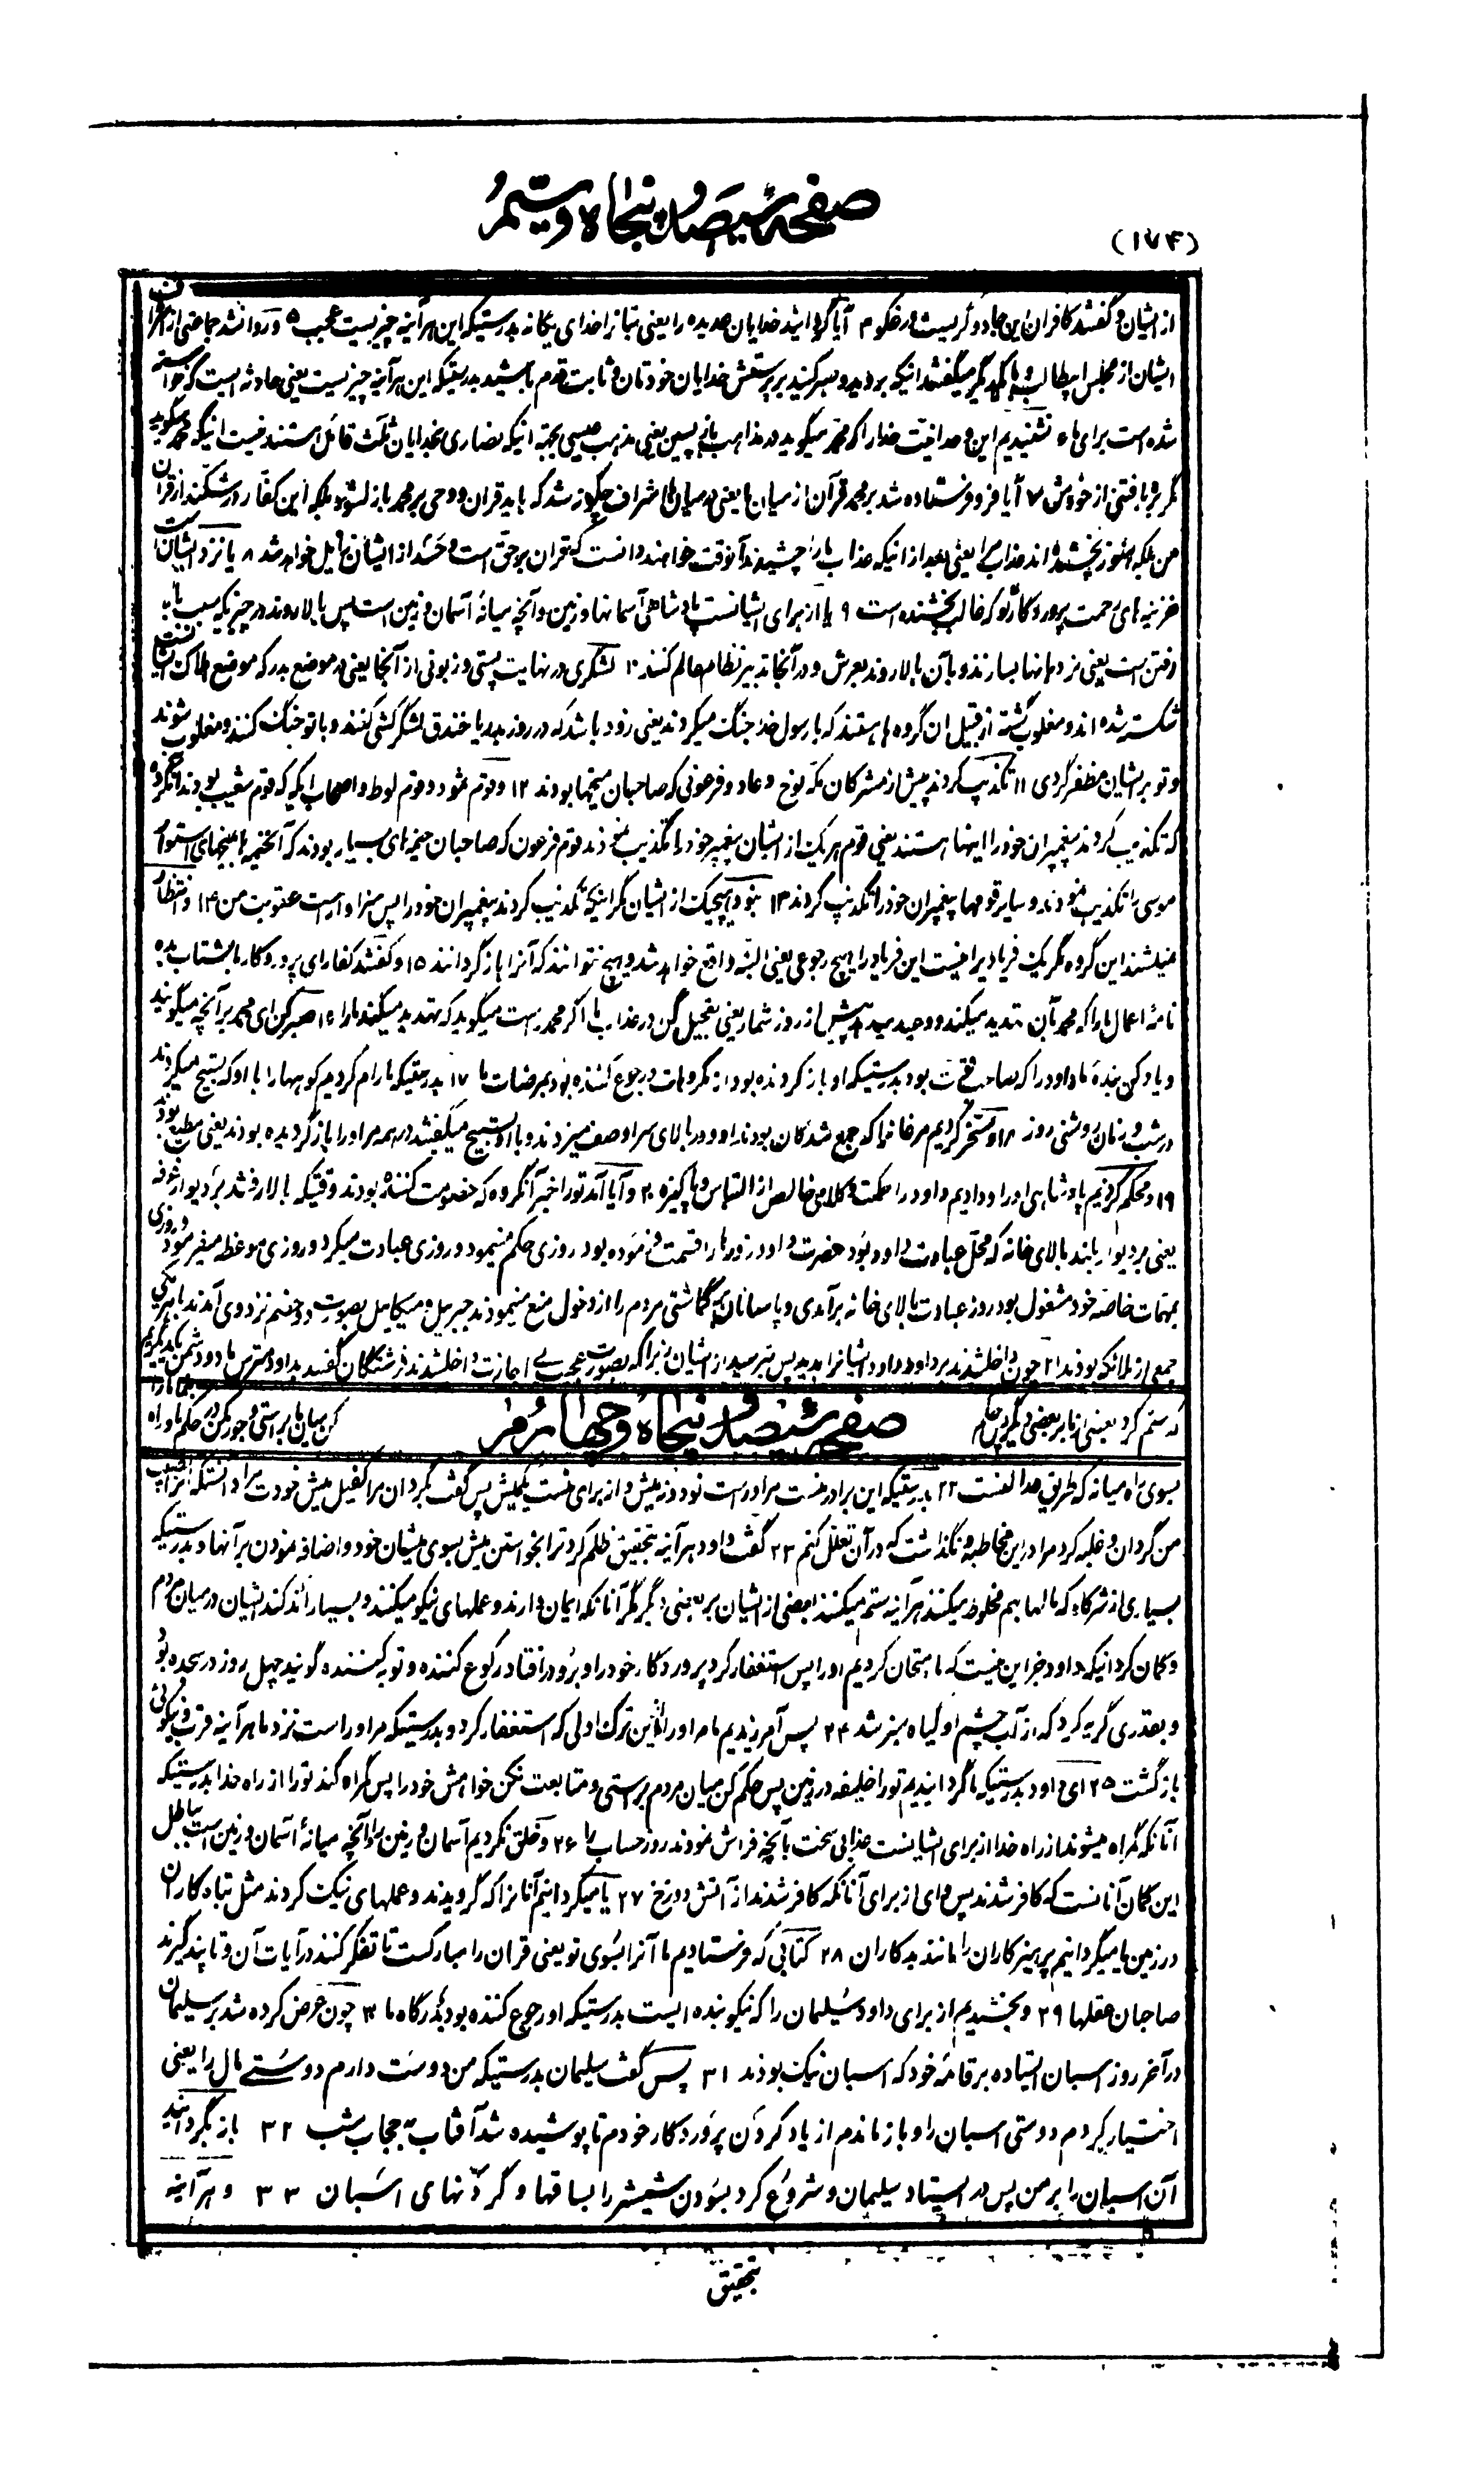 (۱۷۴)
صفحه سیصد و پنجاه و سیم
از ایشان و گفتند کافران این جادوگریست دروغگو ۴ آیا گردانید خدایان عدیده را یعنی بتانرا خدای یگانه بدرستیکه این هر آینه چیزیست عجیب ۵ و روانشد جماعتی از اشراف
ایشان از مجلس ابیطالب و بیکدیگر میگفتند اینکه بروید و صبر کنید بر پرستش خدایان خودتان و ثابت قدم باشید بدرستیکه این هر آینه چیزیست یعنی حادثه ایست که خواسته
شده است برای ما ۶ نشنیدیم این وحدانیت خدا را که محمد میگوید در مذاهب باز پسین یعنی مذهب عیسی بجهة اینکه نصاری بخدایان ثلث قائل هستند نیست اینکه محمد میگوید
مگر دروغ بافتنی از خودش ۷ آیا فرو فرستاده شد بر محمد قرآن از میان ما یعنی در میان ما اشراف چگونه شد که باید قران و وحی بر محمد نازلشود بلکه این کفار در شکند از قران
من بلکه هنوز نچشیده اند عذاب مرا یعنی بعد از انیکه عذاب ما را چشیدند آنوقت خواهند دانست که قران بر حق است و حسد از ایشان زایل خواهد شد ۸ یا نزد ایشان است
خزینه های رحمت پروردگار تو که غالب بخشنده است ۹ یا از برای ایشانست پادشاهی آسمانها و زمین و آنچه میانهٔ آسمان و زمین است پس بالا روند در چیزیکه سبب بالا
رفتن است یعنی نردبانها بسازند و بآن بالا روند بعرش و در آنجا تدبیر نظام عالم کنند ۱۰ لشکری در نهایت پستی و زبونی از آنجا یعنی در موضع بدر که موضع هلاکت ایشانست
شکست شده اند و مغلوب گشته از قبیل ان گروه ها هستند که با رسول خدا جنگ میکردند یعنی زود باشد که در روز بدر یا خندق لشگر کشی کنند و با تو جنگ کنند و مغلوب شوند
و تو بر ایشان مظفر گردی ۱۱ تکذیب کردند پیش از مشرکان مکه نوح و عاد و فرعونی که صاحبان میخها بودند ۱۲ و قوم ثمود و قوم لوط و اصحاب ایکه که قوم شعیب بودند آنگروه
که تکذیب کردند پیغمبران خود را اینها هستند یعنی قوم هر یک از ایشان پیغمبر خود را تکذیب نمودند قوم فرعون که صاحبان خیمه های بسیار بودند که آنخیمه ها بمیخهای استوار
موسی را تکذیب نمودند و سایر قومها پیغمبران خود را تکذیب کردند ۱۳ نبود هیچیک از ایشان مگر اینکه تکذیب کردند پیغمبران خود را پس سزاوار است عقوبت من ۱۴ و انتظار
نمیکشند این گروه مگر یک فریاد را نیست این فریاد را هیچ رجوعی یعنی البته واقع خواهد شد و هیچ نتوانند که آنرا باز گردانند ۱۵ و گفتند کفار ای پروردگار ما بشتاب بده
نامهٔ اعمال ما را که محمد بآن تهدید میکند و وعید میدهد پیش از روز شمار یعنی تعجیل کن در عذاب ما اگر محمد راست میگوید که تهدید میکند ما را ۱۶ صبر کن ای محمد بر آنچه میگویند
و یاد کن بندهٔ ما داود را که صاحب قوت بود بدرستیکه او باز گردنده بود از مکروهات و رجوع کننده بود بمرضات ما ۱۷ بدرستیکه ما رام کردیم کوهها را با او که تسبیح میکردند
در شب و زمان روشنی روز ۱۸ و مسخر کردیم مرغانرا که جمع شدگان بودند با او و در بالای سر او صف میزدند و با او تسبیح میگفتند همه مر او را باز گردیده بودند یعنی مطیع بودند
۱۹ و محکم کردیم پادشاهی او را و دادیم داود را حکمت و کلامی خالص از التباس و پاکیزه ۲۰ و آیا آمد تو را خبر آنگروه که خصومت کننده بودند وقتیکه بالا رفتند بر دیوار غرفه
یعنی بر دیوار بلند بالای خانه که محل عبادت داود بود حضرت داود روزها را قسمت فرموده بود روزی حکم مینمود و روزی عبادت میکرد و روزی موعظه میفرمود و روزی
بمهمات خاصه خود مشغول بود روز عبادت ببالای خانه برآمدی و پاسبانان گماشتی مردم را از دخول منع مینمودند جبریل و میکاییل بصورت دو خصم نزد وی آمدند با هر یکی
جمعی از ملائکه بودند ۲۱ چون داخلشدند بر داود داود ایشانرا بدید پس ترسید از ایشان زیرا که بصورت عجیب بی اجازت داخلشدند فرشتگان گفتند بداود مترس ما دو دشمن یکدیگریم
که ستم کرد بعضی از ما بر بعضی دیگر پس حکم
صفحه سیصد و پنجاه و چهارم
کن میان ما براستی و جور مکن در حکم ما و راه نما ما را
بسوی راه میانه که طریق عدالتست ۲۲ بدرستیکه این برادر منست مر او راست نود و نه میش و از برای منست یک میش پس گفت بگردان مرا کفیل میش خودت مراد انستکه انرا نصیب
من گردان و غلبه کرد مرا در این مخاطبه و نگذاشت که در آن تعقل کنم ۲۳ گفت داود هر آینه بتحقیق ظلم کرد ترا بخواستن میش بسوی میشان خود و اضافه نمودن بر آنها و بدرستیکه
بسیاری از شرکاء که مالها بهم مخلوط میکنند هر آینه ستم میکنند بعضی از ایشان بر بعضی دیگر مگر آنانکه ایمان دارند و عملهای نیکو میکنند و بسیار اندکند ایشان در میان مردم
و گمان کرد اینکه داود جز این نیست که ما امتحان کردیم او را پس استغفار کرد پروردگار خود را و برو در افتاد رکوع کننده و توبه کننده گویند چهل روز در سجده بود
و بقدری گریه کرد که از آب چشم او گیاه سبز شد ۲۴ پس آمرزیدیم ما مر او را از این ترک اولی که استغفار کرد و بدرستیکه مر او راست نزد ما هر آینه قرب و نیکوئی
بازگشت ۲۵ ای داود بدرستیکه ما گردانیدیم تو را خلیفه در زمین پس حکم کن میان مردم براستی و متابعت نکن خواهش خود را پس گمراه کند تو را از راه خدا بدرستیکه
آنانکه گمراه میشوند از راه خدا از برای ایشانست عذابی سخت بآنچه فراموش نمودند روز حساب را ۲۶ و خلق نکردیم آسمان و زمین را و آنچه میانهٔ آسمان و زمین است بباطل
این گمان آنانست که کافر شدند پس وای از برای آنانکه کافر شدند از آتش دوزخ ۲۷ یا میگردانیم آنانرا که گرویدند و عملهای نیک کردند مثل تباه کاران
در زمین یا میگردانیم پرهیزکاران را مانند بدکاران ۲۸ کتابی که فرستادیم ما آنرا بسوی تو یعنی قران را مبارکست تا تفکر کنند در آیات آن و تا پند گیرند
صاحبان عقلها ۲۹ و بخشیدیم از برای داود سلیمان را که نیکو بنده ایست بدرستیکه او رجوع کننده بود بدرگاه ما ۳۰ چون عرض کرده شد بر سلیمان
در آخر روز اسبان ایستاده بر قائمه خود که اسبان نیک بودند ۳۱ پس گفت سلیمان بدرستیکه من دوست دارم دوستی مال را یعنی
اختیار کردم دوستی اسبان را و باز ماندم از یاد کردن پروردگار خودم تا پوشیده شد آفتاب بحجاب شب ۳۲ باز گردانید
آن اسبان را بر من پس در ایستاد سلیمان و شروع کرد بسودن شمشیر را بساقها و گردنهای اسبان ۳۳ و هر آینه
بتحقیق